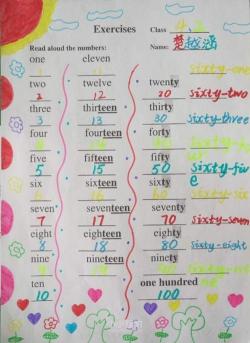 Exercises
Class 4.2
Read aloud the numbers: Name: 楚越涵
one eleven
sixty-one
two twelve twenty
2 12 20 sixty-two
three thirteen thirty
3 13 30 sixty-three
four fourteen forty
five fifteen fifty
5 15 50 sixty-five
six sixteen sixty
seven seventeen seventy
7 17 70 sixty-seven
eight eighteen eighty
8 18 80 sixty-eight
nine nineteen ninety
ten one hundred
10 100